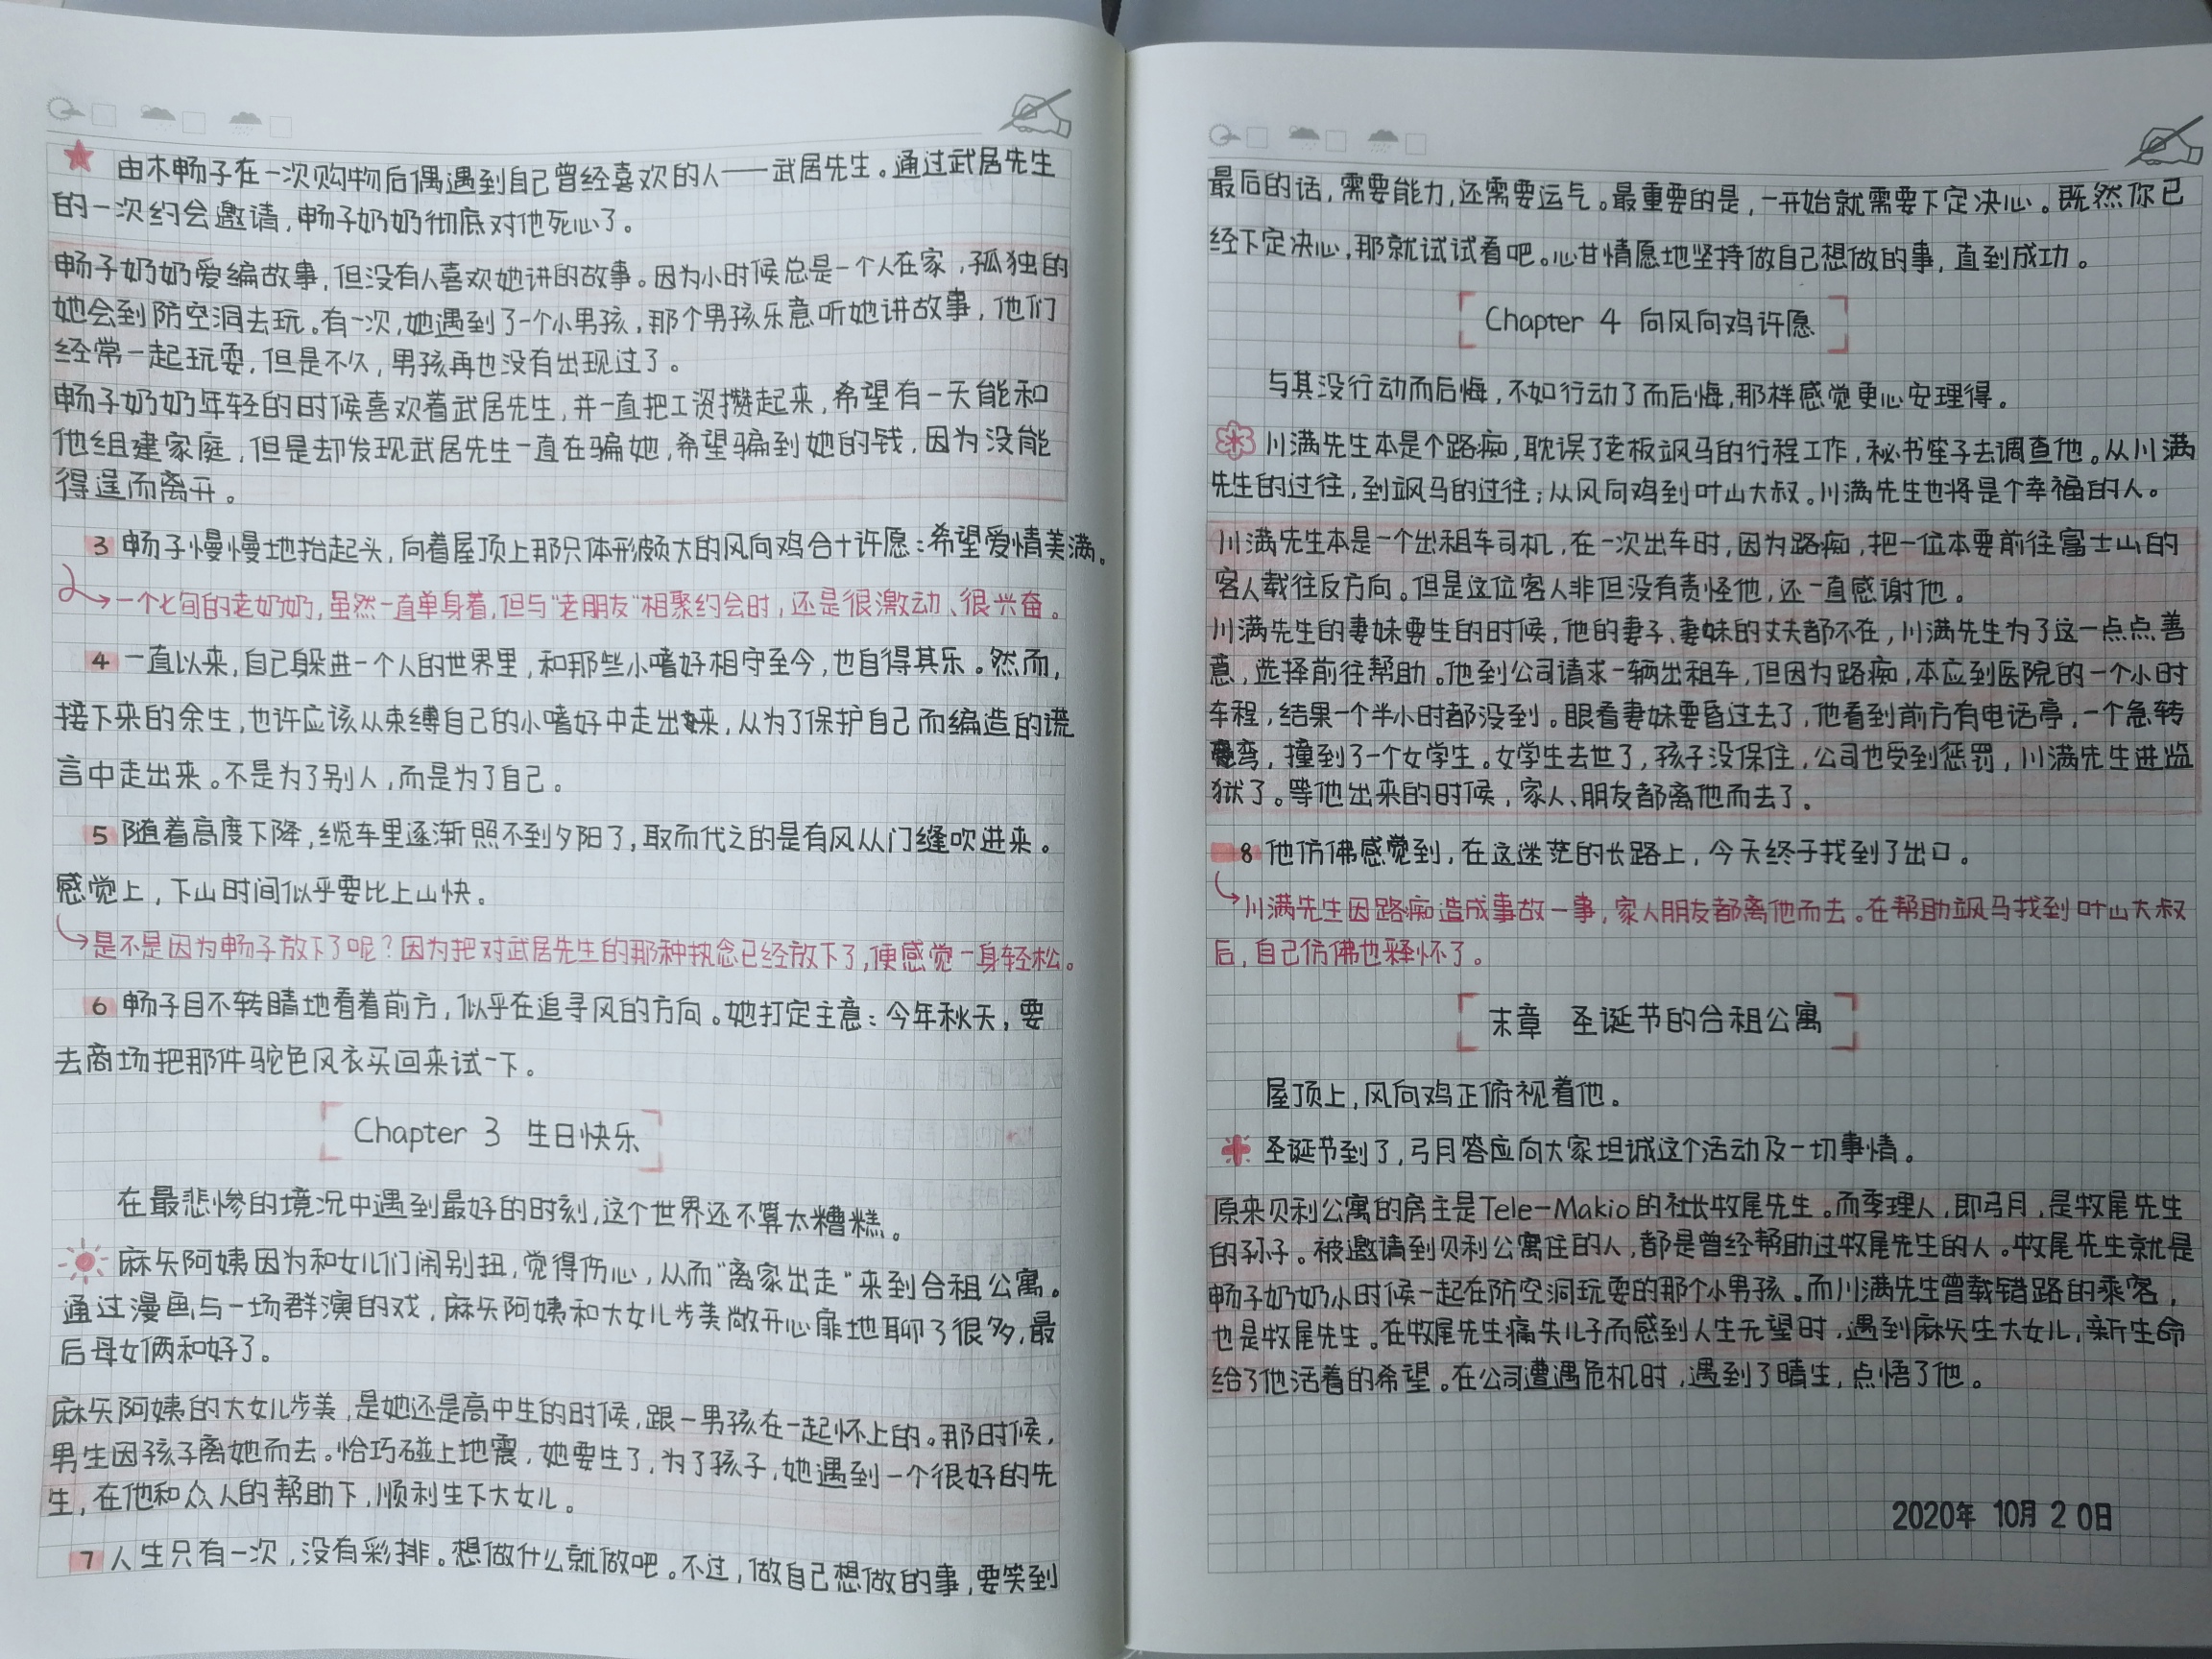 由木畅子在一次购物后偶遇到自己曾经喜欢的人——武居先生。通过武居先生
的一次约会邀请,畅子奶奶彻底对他死心了。
畅子奶奶爱编故事,但没有人喜欢她讲的故事。因为小时候总是一个人在家,孤独的
她会到防空洞去玩。有一次,她遇到了一个小男孩,那个男孩乐意听她讲故事,他们
经常一起玩耍,但是不久,男孩再也没有出现过了。
畅子奶奶年轻的时候喜欢着武居先生,并一直把工资攒起来,希望有一天能和
他组建家庭,但是却发现武居先生一直在骗她,希望骗到她的钱,因为没能
得逞而离开。
3 畅子慢慢地抬起头,向着屋顶上那只体形颇大的风向鸡合十许愿:希望爱情美满。
一个七旬的老奶奶,虽然一直单身着,但与“老朋友”相聚约会时,还是很激动、很兴奋。
4 一直以来,自己躲进一个人的世界里,和那些小嗜好相守至今,也自得其乐。然而,
接下来的余生,也许应该从束缚自己的小嗜好中走出来,从为了保护自己而编造的谎
言中走出来。不是为了别人,而是为了自己。
5 随着高度下降,缆车里逐渐照不到夕阳了,取而代之的是有风从门缝吹进来。
感觉上,下山时间似乎要比上山快。
是不是因为畅子放下了呢?因为把对武居先生的那种执念已经放下了,便感觉一身轻松。
6 畅子目不转睛地看着前方,似乎在追寻风的方向。她打定主意:今年秋天,要
去商场把那件驼色风衣买回来试一下。
Chapter 3 生日快乐
在最悲惨的境况中遇到最好的时刻,这个世界还不算太糟糕。
麻矢阿姨因为和女儿们闹别扭,觉得伤心,从而“离家出走”来到合租公寓。
通过漫画与一场群演的戏,麻矢阿姨和大女儿步美敞开心扉地聊了很多,最
后母女俩和好了。
麻矢阿姨的大女儿步美,是她还是高中生的时候,跟一男孩在一起怀上的。那时候,
男生因孩子离她而去。恰巧碰上地震,她要生了,为了孩子,她遇到一个很好的先
生,在他和众人的帮助下,顺利生下大女儿。
7 人生只有一次,没有彩排。想做什么就做吧。不过,做自己想做的事,要笑到
最后的话,需要能力,还需要运气。最重要的是,一开始就需要下定决心。既然你已
经下定决心,那就试试看吧。心甘情愿地坚持做自己想做的事,直到成功。
Chapter 4 向风向鸡许愿
与其没行动而后悔,不如行动了而后悔,那样感觉更心安理得。
川满先生本是个路痴,耽误了老板飒马的行程工作,秘书笙子去调查他。从川满
先生的过往,到飒马的过往;从风向鸡到叶山大叔。川满先生也将是个幸福的人。
川满先生本是一个出租车司机,在一次出车时,因为路痴,把一位本要前往富士山的
客人载往反方向。但是这位客人非但没有责怪他,还一直感谢他。
川满先生的妻妹要生的时候,他的妻子、妻妹的丈夫都不在,川满先生为了这一点点善
意,选择前往帮助。他到公司请求一辆出租车,但因为路痴,本应到医院的一个小时
车程,结果一个半小时都没到。眼看妻妹要昏过去了,他看到前方有电话亭,一个急转
弯,撞到了一个女学生。女学生去世了,孩子没保住,公司也受到惩罚,川满先生进监
狱了。等他出来的时候,家人、朋友都离他而去了。
8 他仿佛感觉到,在这迷茫的长路上,今天终于找到了出口。
川满先生因路痴造成事故一事,家人朋友都离他而去。在帮助飒马找到叶山大叔
后,自己仿佛也释怀了。
末章 圣诞节的合租公寓
屋顶上,风向鸡正俯视着他。
圣诞节到了,弓月答应向大家坦诚这个活动及一切事情。
原来贝利公寓的房主是Tele-Makio的社长牧尾先生。而季理人,即弓月,是牧尾先生
的孙子。被邀请到贝利公寓住的人,都是曾经帮助过牧尾先生的人。牧尾先生就是
畅子奶奶小时候一起在防空洞玩耍的那个小男孩。而川满先生曾载错路的乘客,
也是牧尾先生。在牧尾先生痛失儿子而感到人生无望时,遇到麻矢生大女儿,新生命
给了他活着的希望。在公司遭遇危机时,遇到了晴生,点悟了他。
2020年 10月 20日